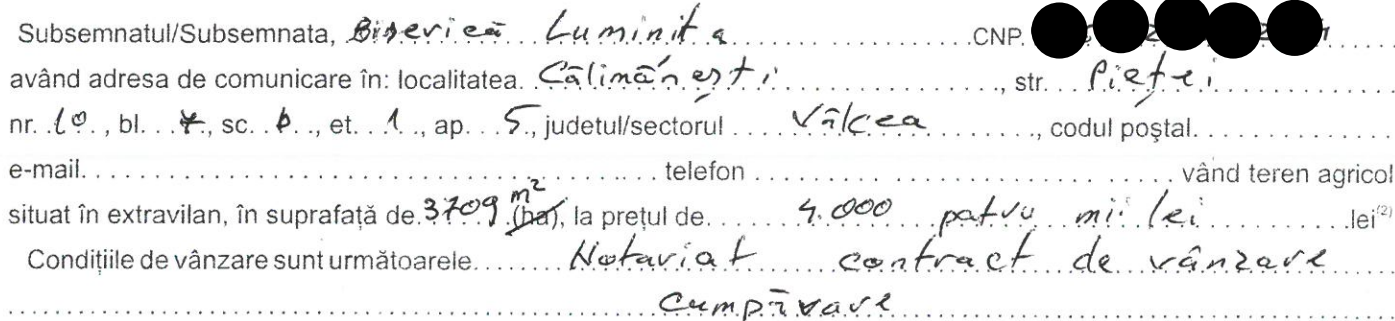 Subsemnatul/Subsemnata, Biserică Luminita CNP
având adresa de comunicare în: localitatea. Călimănești, str. Pieței
nr. 10, bl. sc. b, et. 1, ap. 5, judetul/sectorul Vâlcea, codul poştal
e-mail telefon vând teren agricol
situat în extravilan, în suprafață de 3709 m² (ha), la prețul de 4.000 patru mii lei lei(2)
Condițiile de vânzare sunt următoarele Notariat contract de vânzare
Cumpărare